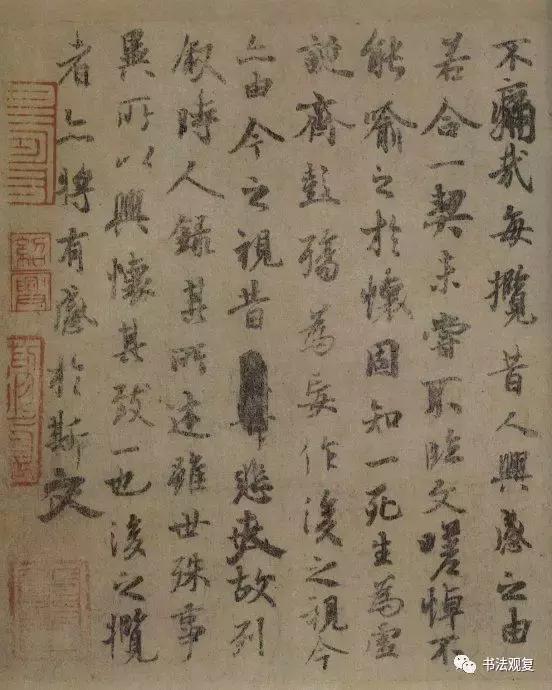 不痛哉每攬昔人興感之由
若合一契未嘗不臨文嗟悼不
能喻之於懷固知一死生為虛
誕齊彭殤為妄作後之視今
亦由今之視昔悲夫故列
敘時人錄其所述雖世殊事
異所以興懷其致一也後之攬
者亦將有感於斯文
紹興
书法观复